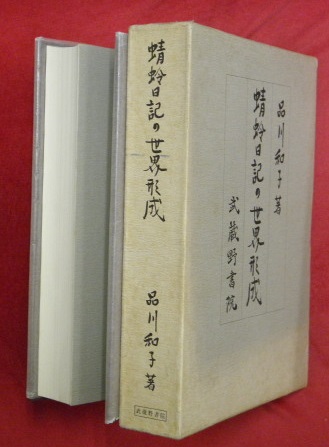 蜻蛉日記の世界形成
品川和子著
武蔵野書院
品川和子著
蜻蛉日記の世界形成
武蔵野書院